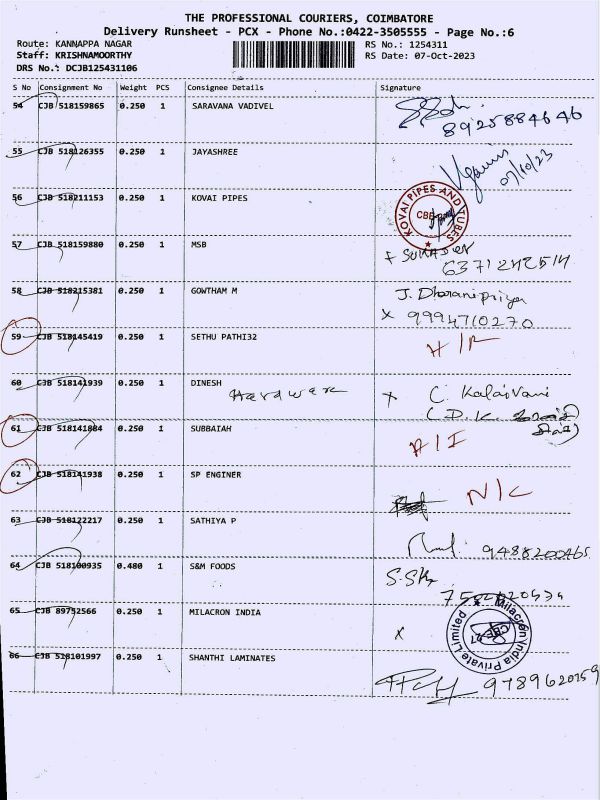 THE PROFESSIONAL COURIERS, COIMBATORE
Delivery Runsheet - PCX - Phone No.:0422-3505555 - Page No.:6
Route: KANNAPPA NAGAR RS No.: 1254311
Staff: KRISHNAMOORTHY RS Date: 07-Oct-2023
DRS No.: DCJB125431106
S No Consignment No Weight PCS Consignee Details Signature
54 CJB 518159865 0.250 1 SARAVANA VADIVEL
8925884646
55 CJB 518126355 0.250 1 JAYASHREE
07/10/23
56 CJB 518211153 0.250 1 KOVAI PIPES
KOVAI PIPES AND TUBES
CBE
57 CJB 518159880 0.250 1 MSB
58 CJB 518215381 0.250 1 GOWTHAM M J. Dharanipriya
x 9994710270
59 CJB 518145419 0.250 1 SETHU PATHI32
60 CJB 518141939 0.250 1 DINESH Hardware x C. Kalaivani
(D.K.
61 CJB 518141884 0.250 1 SUBBAIAH
62 CJB 518141938 0.250 1 SP ENGINER N/C
63 CJB 518122217 0.250 1 SATHIYA P
9488200465
64 CJB 518100935 0.480 1 S&M FOODS
65 CJB 89752566 0.250 1 MILACRON INDIA x
Milacron India Private Limited
66 CJB 518101997 0.250 1 SHANTHI LAMINATES
9789620159